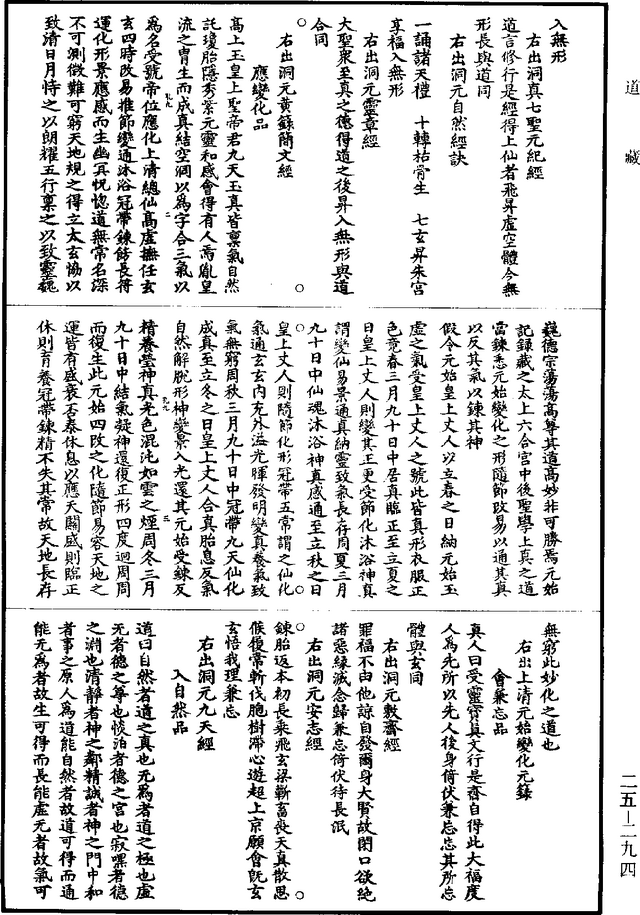 道藏
入無形
右出洞真七聖元紀經
道言修行是經得上仙者飛昇虛空體合無
形長與道同
右出洞元自然經訣
一誦諸天禮　十轉枯骨生　七玄昇朱宮
享福入無形
右出洞元靈章經
大聖衆至真之德得道之後昇入無形與道
合同
右出洞元黃籙簡文經
應變化品
高上玉皇上聖帝君九天玉真皆稟氣自然
託瓊胎隱秀紫元靈和感會得有人焉胤皇
流之胄生而成真結空洞以爲字合三氣以
爲名受號帝位應化上清總仙高虛撫任玄
玄四時改易推節變通沐浴冠帶鍊飭長存
運化形景應感而生幽冥怳惚道無常名深
不可測微難可窮天地規之得立太玄協以
致清日月恃之以朗耀五行稟之以致靈巍
巍德宗蕩蕩高尊其道高妙非可勝焉元始
記録藏之太上六合宮中後聖學上真之道
當鍊悉元始變化之形隨節改易以通其真
以反其氣以鍊其神
假令元始皇上丈人以立春之日納元始玉
虛之氣受皇上丈人之號此皆真形衣服正
色竟春三月九十日中居真臨正至立夏之
日皇上丈人則變其正更受節化沐浴神真
謂變仙易景通真納靈致氣長存周夏三月
九十日中仙魂沐浴神真感通至立秋之日
皇上丈人則隨節化形冠帶五常謂之仙化
氣通玄玄內充外溢光暉發明變真養氣致
氣無窮周秋三月九十日中冠帶九天仙化
成真至立冬之日皇上丈人合真胎息反氣
自然解脱形神變景入光還其元始受鍊反
精養瑩神真光色混沌如雲之煙周冬三月
九十日中結氣凝神還復正形四度迴周周
而復生此元始四改之化隨節易容天地之
運皆有盛衰否泰休息以應天關盛則臨正
休則育養冠帶鍊精不失其常故天地長存
無窮此妙化之道也
右出上清元始變化元籙
會兼忘品
真人曰受靈寶真文行是齋自得此大福度
人爲先所以先人後身脩伏兼忘忘其所忘
體與玄同
右出洞元敷齋經
罪福不由他諒自發爾身大賢故閉口欲絶
諸惡緣滅念歸兼忘脩伏待長泯
右出洞元安志經
鍊胎返本初長乘飛玄梁斬畜喪天真散思
候履常斬伐胞樹滯心遊超上京願會既玄
玄悟我理兼忘
右出洞元九天經
入自然品
道曰自然者道之真也无爲者道之極也虛
无者德之尊也惔泊者德之宮也寂嘿者德
之淵也清靜者神之鄰精誠者神之門中和
者事之原人爲道能自然者故道可得而通
能无爲者故生可得而長能虛无者故氣可
二五—二九四